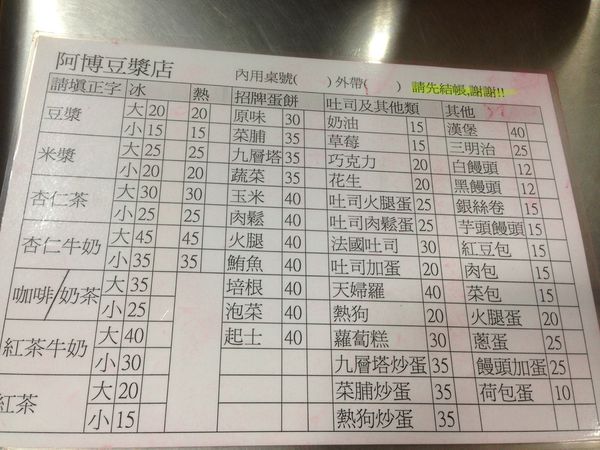 阿博豆漿店 內用桌號( ) 外帶( ) 請先結帳,謝謝!!
請填正字 冰 熱 招牌蛋餅 吐司及其他類 其他
豆漿 大 20 20 原味 30 奶油 20 漢堡 40
小 15 15 菜脯 35 草莓 20 三明治 25
米漿 大 25 25 九層塔 35 巧克力 20 白饅頭 12
小 20 20 蔬菜 35 花生 20 黑饅頭 12
杏仁茶 大 30 30 玉米 40 吐司火腿蛋 25 銀絲卷 15
小 25 25 肉鬆 40 吐司肉鬆蛋 25 芋頭饅頭 15
杏仁牛奶 大 45 45 火腿 40 法國吐司 30 紅豆包 15
小 35 35 鮪魚 40 吐司加蛋 20 肉包 15
咖啡/奶茶 大 35 培根 40 天婦羅 40 菜包 15
小 25 泡菜 40 熱狗 20 火腿蛋 20
紅茶牛奶 大 40 起士 40 蘿蔔糕 30 蔥蛋 25
小 30 九層塔炒蛋 35 饅頭加蛋 25
紅茶 大 20 菜脯炒蛋 35 荷包蛋 10
小 15 熱狗炒蛋 35